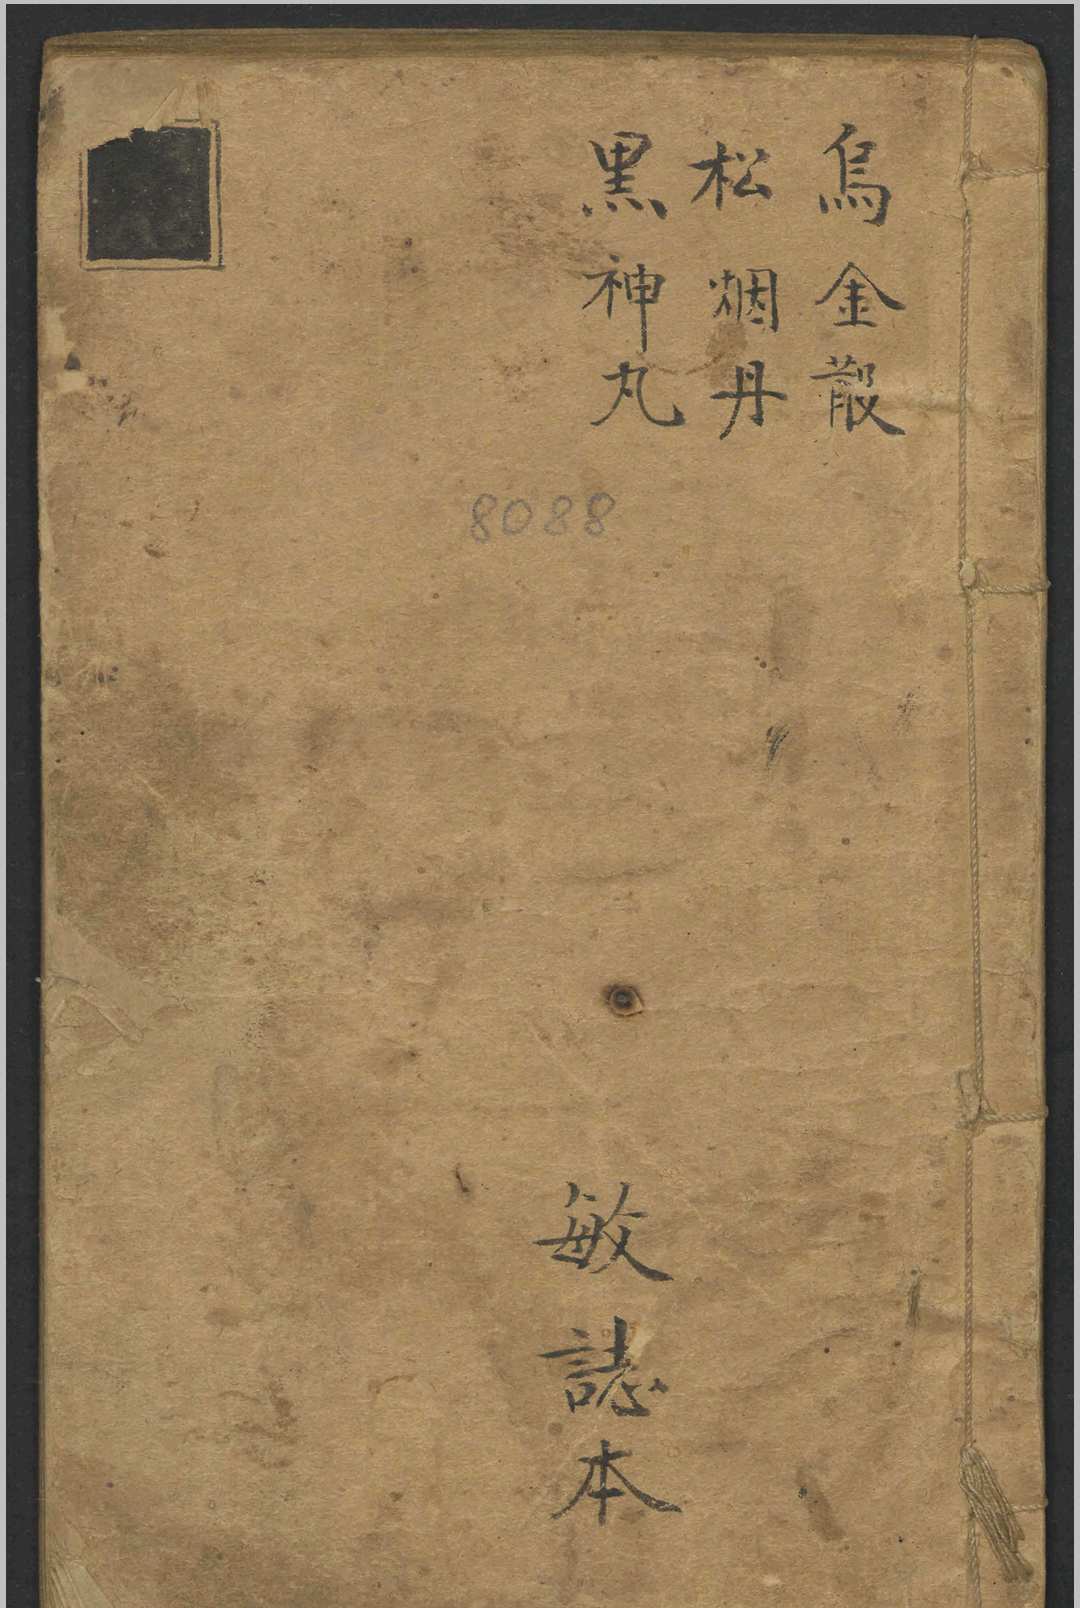 烏金散
松烟丹
黑神丸
8088
敏誌本